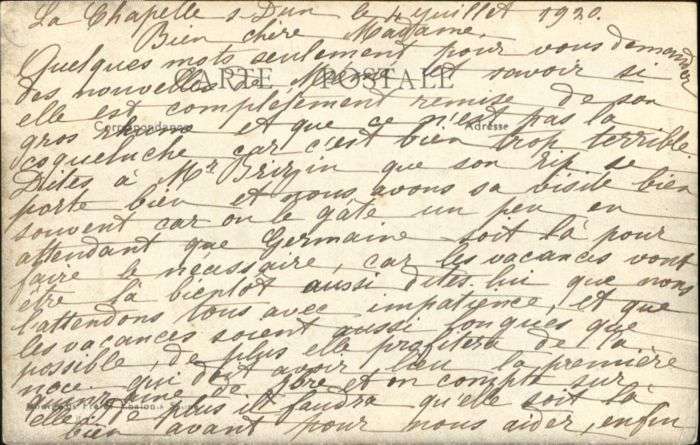 La Chapelle s Dun le 4 juillet 1920.
Bien chère Madame,
Quelques mots seulement pour vous demander
CARTE POSTALE
des nouvelles de et savoir si
elle est complétement remise de son
Correspondance
Adresse
gros rhume et que ce n'est pas la
coqueluche car c'est bien trop terrible.
Dites à Mr que son rip se
porte bien et nous avons sa visite bien
souvent car on le gâte un peu en
attendant que Germaine soit là pour
faire le nécessaire, car les vacances vont
être là bientôt aussi dites-lui que nous
l'attendons tous avec impatience, et que
les vacances soient aussi longues que
possible, de plus elle profitera de la
noce qui doit avoir lieu la première
quinzaine de 7bre et on compte sur
elle, de plus il faudra qu'elle soit là
bien avant pour nous aider, enfin